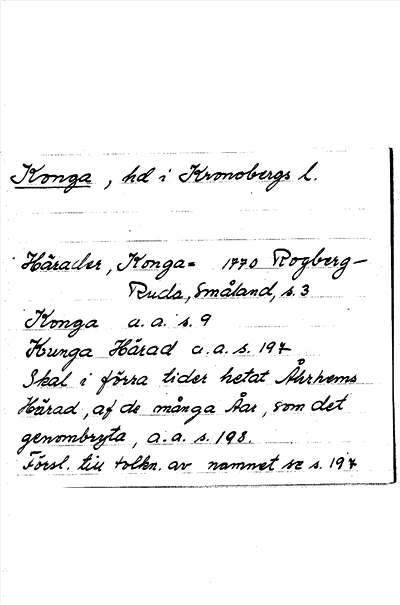 Konga, hd i Kronobergs l.
Härader, Konga= 1770 Rogberg-
Ruda, Småland, s. 3
Konga a. a. s. 9
Kunga Härad a. a. s. 197
Skal i förra tider hetat Åhrhems
Härad, af de många Åar, som det
genombryta, a. a. s. 198.
Försl. till tolkn. av namnet se s. 197